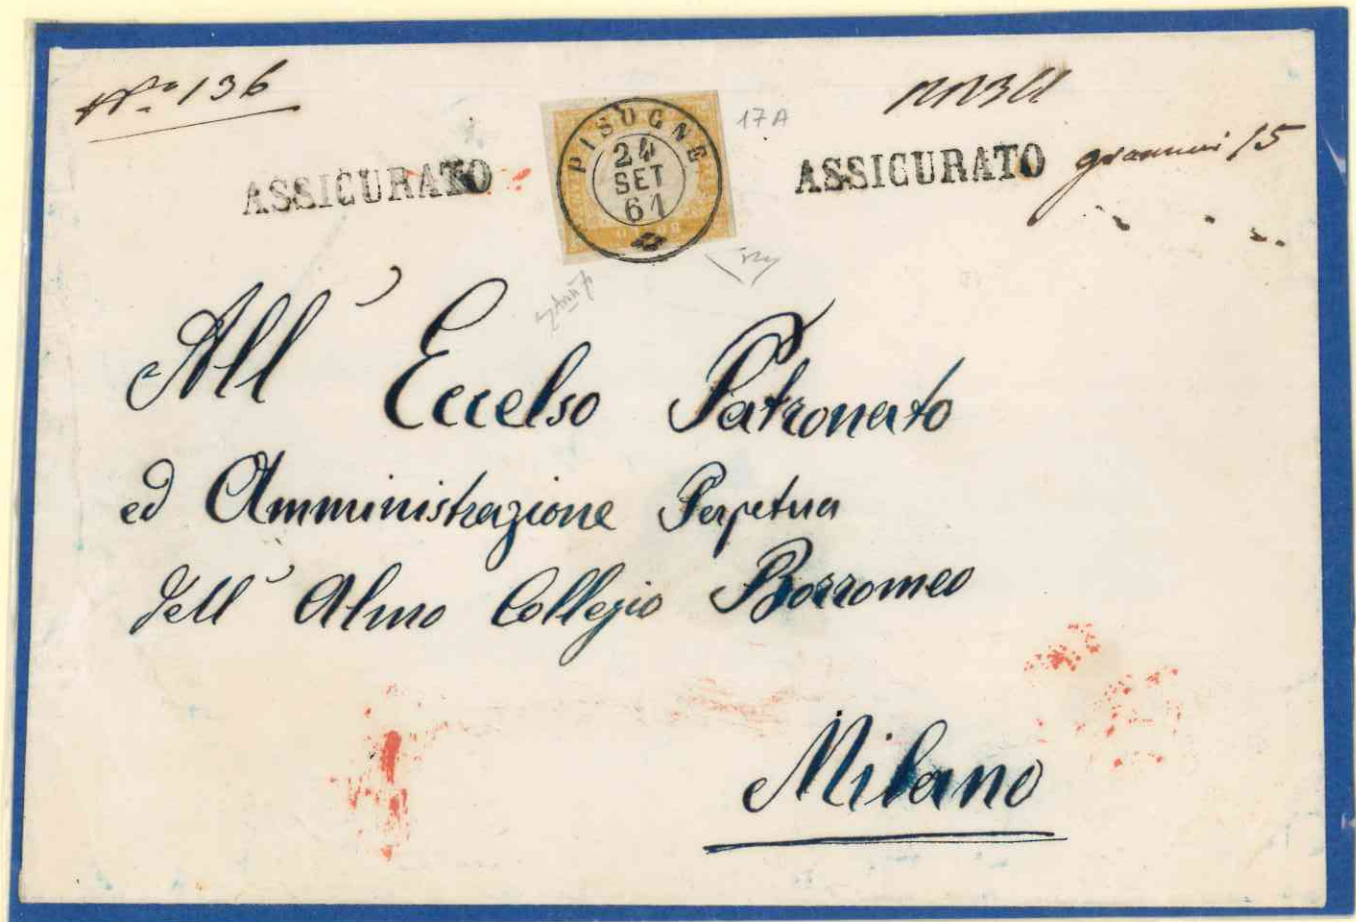 No. 136
ASSICURATO
PISOGNE
24
SET
61
17A
ASSICURATO
grammi 15
All' Eccelso Patronato
ed Amministrazione Perpetua
dell' Almo Collegio Borromeo
Milano